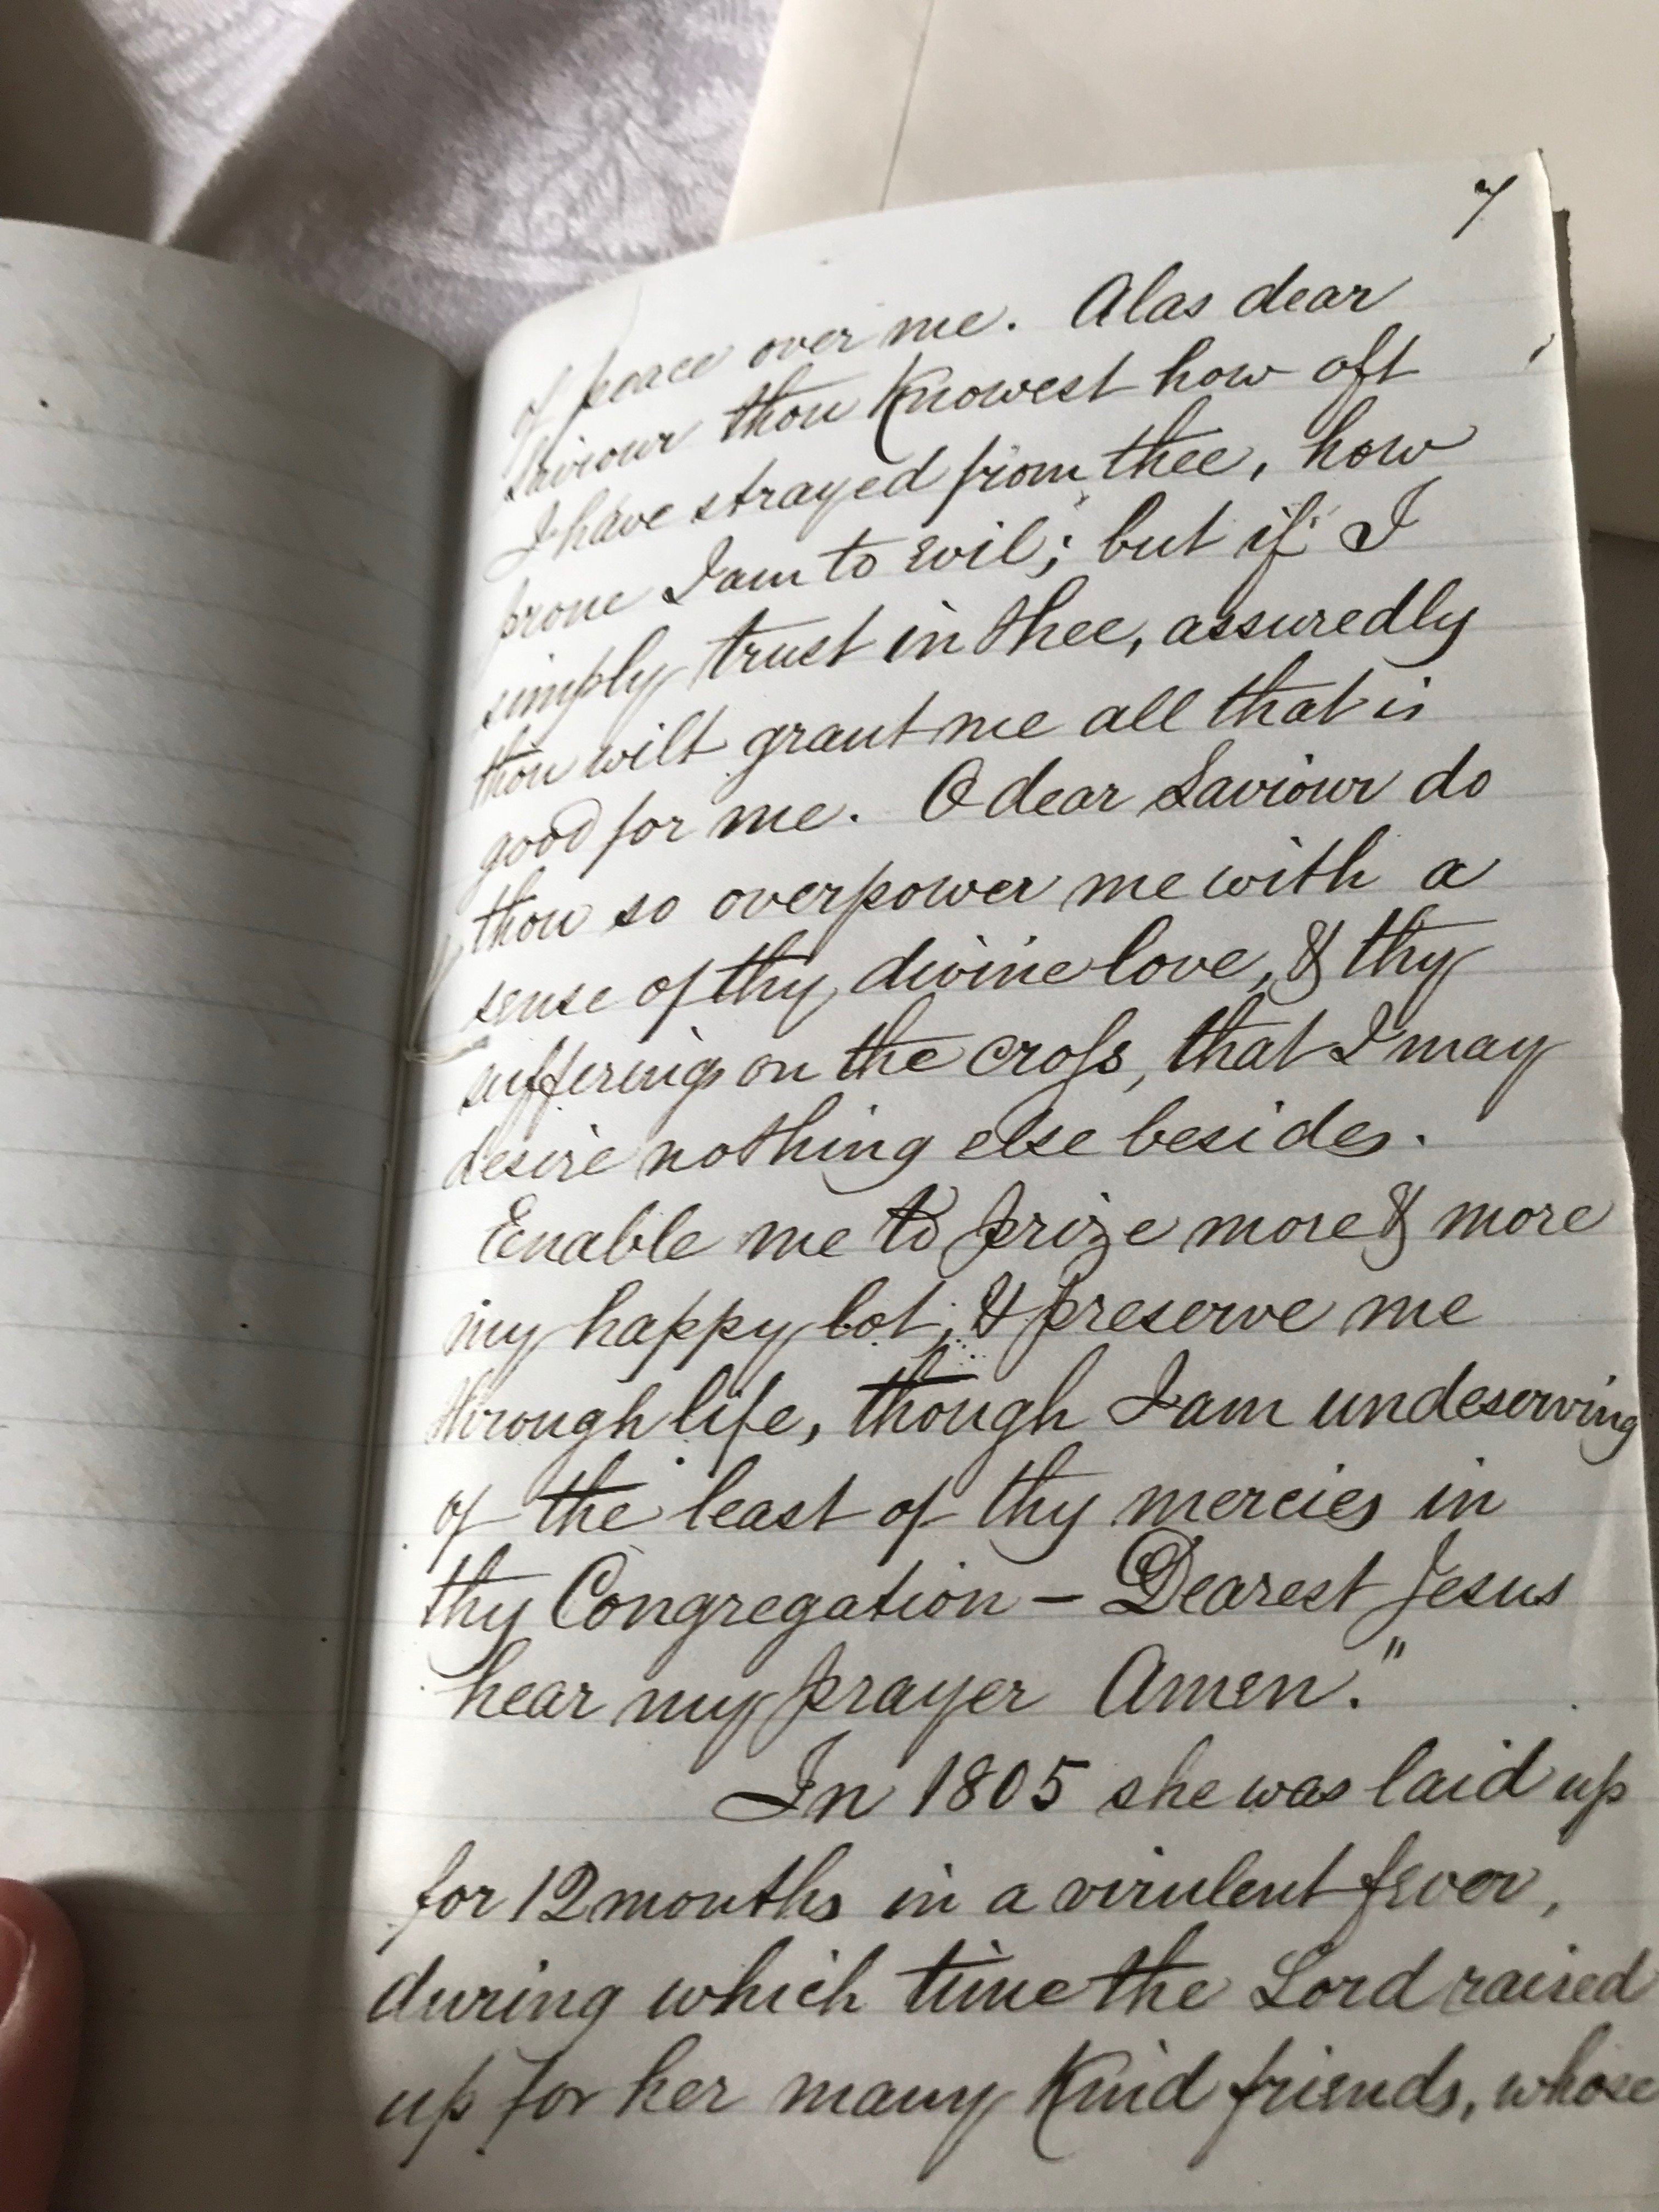 7
of peace over me. Alas dear
Saviour thou knowest how oft
I have strayed from thee, how
prone I am to evil; but if I
simply trust in thee, assuredly
thou wilt grant me all that is
good for me. O dear Saviour do
thou so overpower me with a
sense of thy divine love, & thy
sufferings on the croſs, that I may
desire nothing else besides.
Enable me to prize more & more
my happy lot, & preserve me
through life, though I am undeserving
of the least of thy mercies in
thy Congregation – Dearest Jesus
hear my prayer Amen."
In 1805 she was laid up
for 12 months in a virulent fever,
during which time the Lord raised
up for her many kind friends, whose